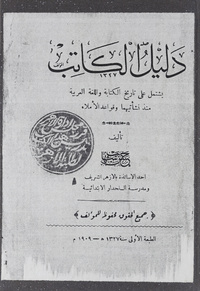 دليل الكاتب
١٣٢٧
يشتمل على تاريخ الكتابة واللغة العربية
منذ نشأتيهما وقواعد الاملاء
تأليف
احد الاساتذة بالازهر الشريف
ومدرسة السلحدار الابتدائية
﴿ جميع الحقوق محفوظة للمؤلف ﴾
الطبعة الاولى سنة ١٣٢٧ هـ — ١٩٠٩ م